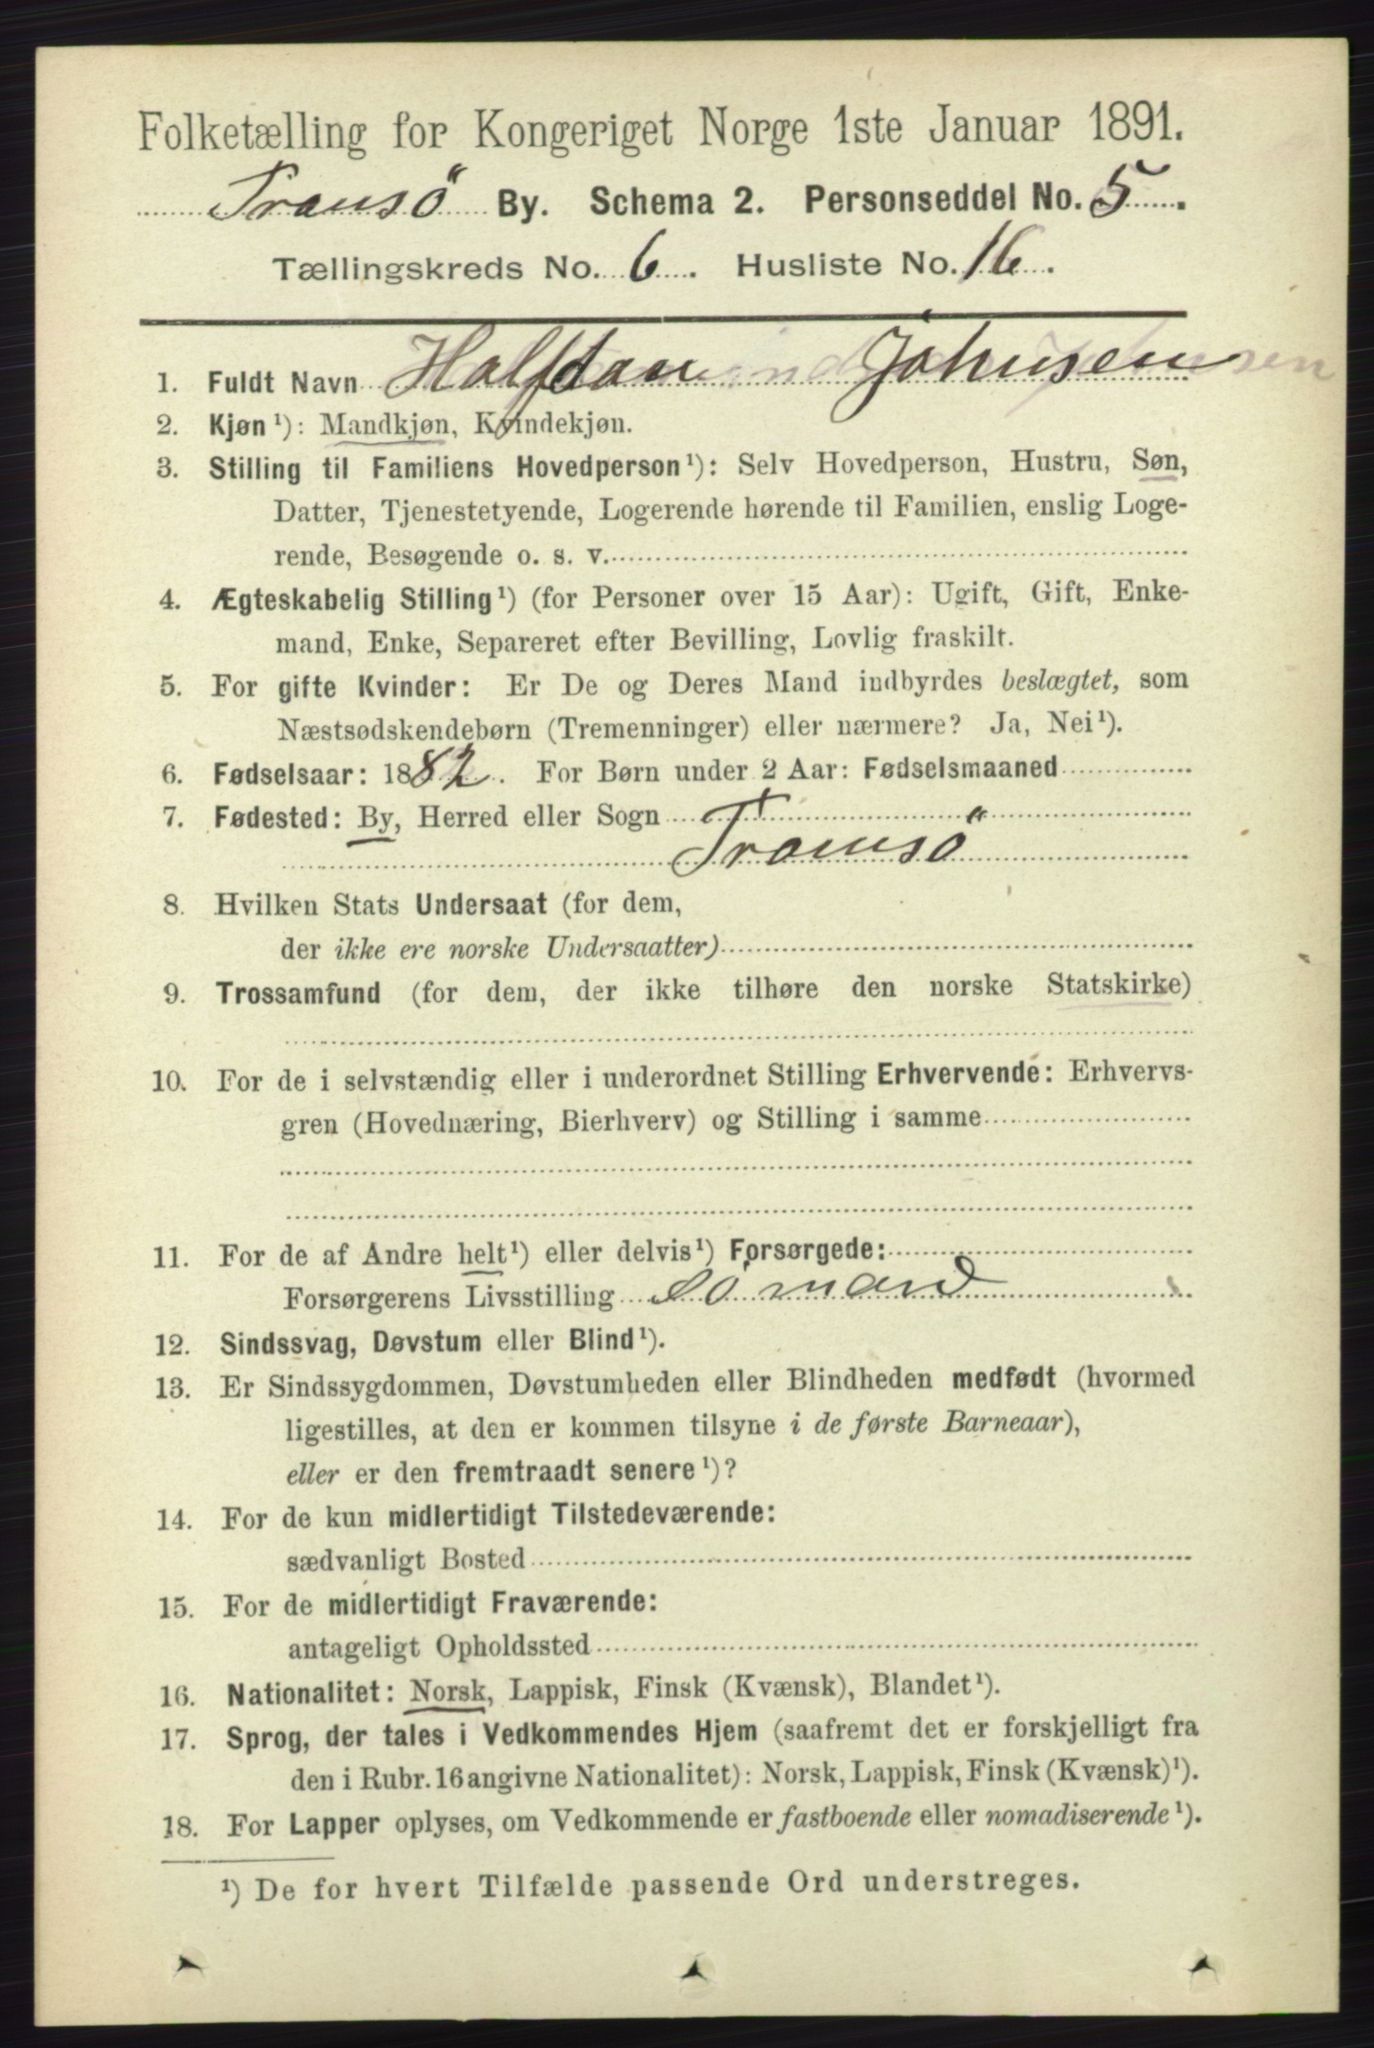 Folketælling for Kongeriget Norge 1ste Januar 1891.
Tromsö By. Schema 2. Personseddel No. 5.
Tællingskreds No. 6. Husliste No. 16.
1. Fuldt Navn Halfdan Johnsen
2. Kjøn¹): Mandkjøn, Kvindekjøn.
3. Stilling til Familiens Hovedperson¹): Selv Hovedperson, Hustru, Søn,
Datter, Tjenestetyende, Logerende hørende til Familien, enslig Loge-
rende, Besøgende o. s. v.
4. Ægteskabelig Stilling¹) (for Personer over 15 Aar): Ugift, Gift, Enke-
mand, Enke, Separeret efter Bevilling, Lovlig fraskilt.
5. For gifte Kvinder: Er De og Deres Mand indbyrdes beslægtet, som
Næstsødskendebørn (Tremenninger) eller nærmere? Ja, Nei¹).
6. Fødselsaar: 1882. For Børn under 2 Aar: Fødselsmaaned
7. Fødested: By, Herred eller Sogn
Tromsö
8. Hvilken Stats Undersaat (for dem,
der ikke ere norske Undersaatter)
9. Trossamfund (for dem, der ikke tilhøre den norske Statskirke)
10. For de i selvstændig eller i underordnet Stilling Erhvervende: Erhvervs-
gren (Hovednæring, Bierhverv) og Stilling i samme
11. For de af Andre helt¹) eller delvis¹) Forsørgede:
Forsørgerens Livsstilling Sömand
12. Sindssvag, Døvstum eller Blind¹).
13. Er Sindssygdommen, Døvstumheden eller Blindheden medfødt (hvormed
ligestilles, at den er kommen tilsyne i de første Barneaar),
eller er den fremtraadt senere¹)?
14. For de kun midlertidigt Tilstedeværende:
sædvanligt Bosted
15. For de midlertidigt Fraværende:
antageligt Opholdssted
16. Nationalitet: Norsk, Lappisk, Finsk (Kvænsk), Blandet¹).
17. Sprog, der tales i Vedkommendes Hjem (saafremt det er forskjelligt fra
den i Rubr. 16 angivne Nationalitet): Norsk, Lappisk, Finsk (Kvænsk)¹).
18. For Lapper oplyses, om Vedkommende er fastboende eller nomadiserende¹).
¹) De for hvert Tilfælde passende Ord understreges.